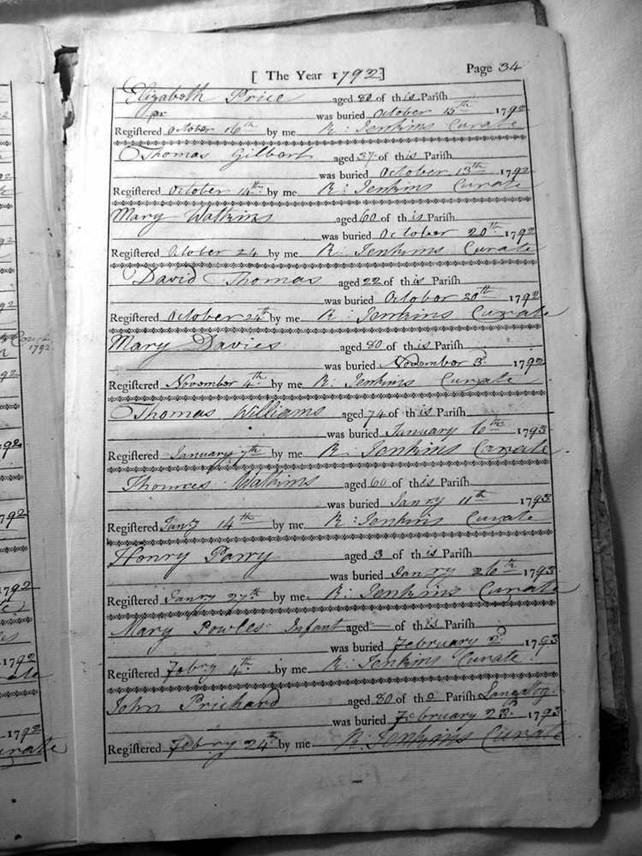 [ The Year 1792]
Page 34
Elizabeth Price aged 80 of this Parish
was buried October 15th 1792
Registered October 16th by me R: Jenkins Curate
Thomas Gilbert aged 37 of this Parish
was buried October 13th 1792
Registered October 14th by me R: Jenkins Curate
Mary Watkins aged 60 of this Parish
was buried October 20th 1792
Registered October 24 by me R: Jenkins Curate
David Thomas aged 22 of this Parish
was buried October 20th 1792
Registered October 24th by me R: Jenkins Curate
Mary Davies aged 80 of this Parish
was buried November 3d 1792
Registered November 4th by me R: Jenkins Curate
Thomas Williams aged 74 of this Parish
was buried January 6th 1793
Registered January 7th by me R: Jenkins Curate
Thomas Watkins aged 60 of this Parish
was buried Janry 11th 1793
Registered Janry 14th by me R: Jenkins Curate
Henry Parry aged 3 of this Parish
was buried Janry 26th 1793
Registered Janry 27th by me R: Jenkins Curate
Mary Powles Infant aged of this Parish
was buried February 2d 1793
Registered Febry 4th by me R: Jenkins Curate
John Prichard aged 80 of the Parish
was buried February 23d 1793
Registered Febry 24th by me R: Jenkins Curate